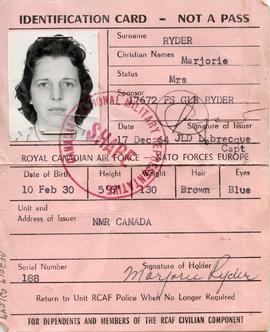 IDENTIFICATION CARD - NOT A PASS
Surname
RYDER
Christian Names
Marjorie
Status
Mrs
Sponsor
17672 FS GLB RYDER
Date
Signature of Issuer
17 Dec 64 JLD Labrecque
Capt
ROYAL CANADIAN AIR FORCE NATO FORCES EUROPE
Date of Birth Height Weight Hair Eyes
10 Feb 30 5'6" 130 Brown Blue
Unit and
Address of Issuer
NMR CANADA
Serial Number
Signature of Holder
188
Marjorie Ryder
Return to Unit RCAF Police When No Longer Required
FOR DEPENDENTS AND MEMBERS OF THE RCAF CIVILIAN COMPONENT
SHAPE